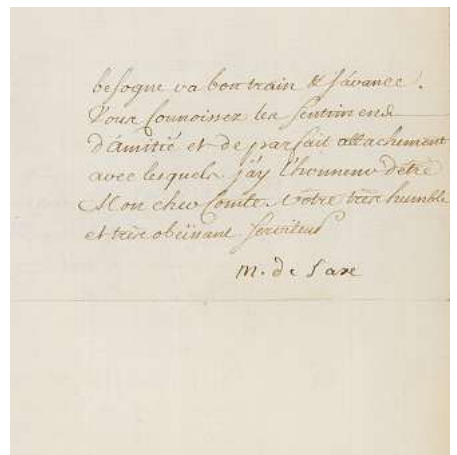 besogne va bon train & s'avance.
Vous connoissez les sentimens
d'amitié et de parfait attachement
avec lesquels j'ay l'honneur d'etre
Mon cher Comte. Vôtre très humble
et très obéissant serviteur
M. de Saxe